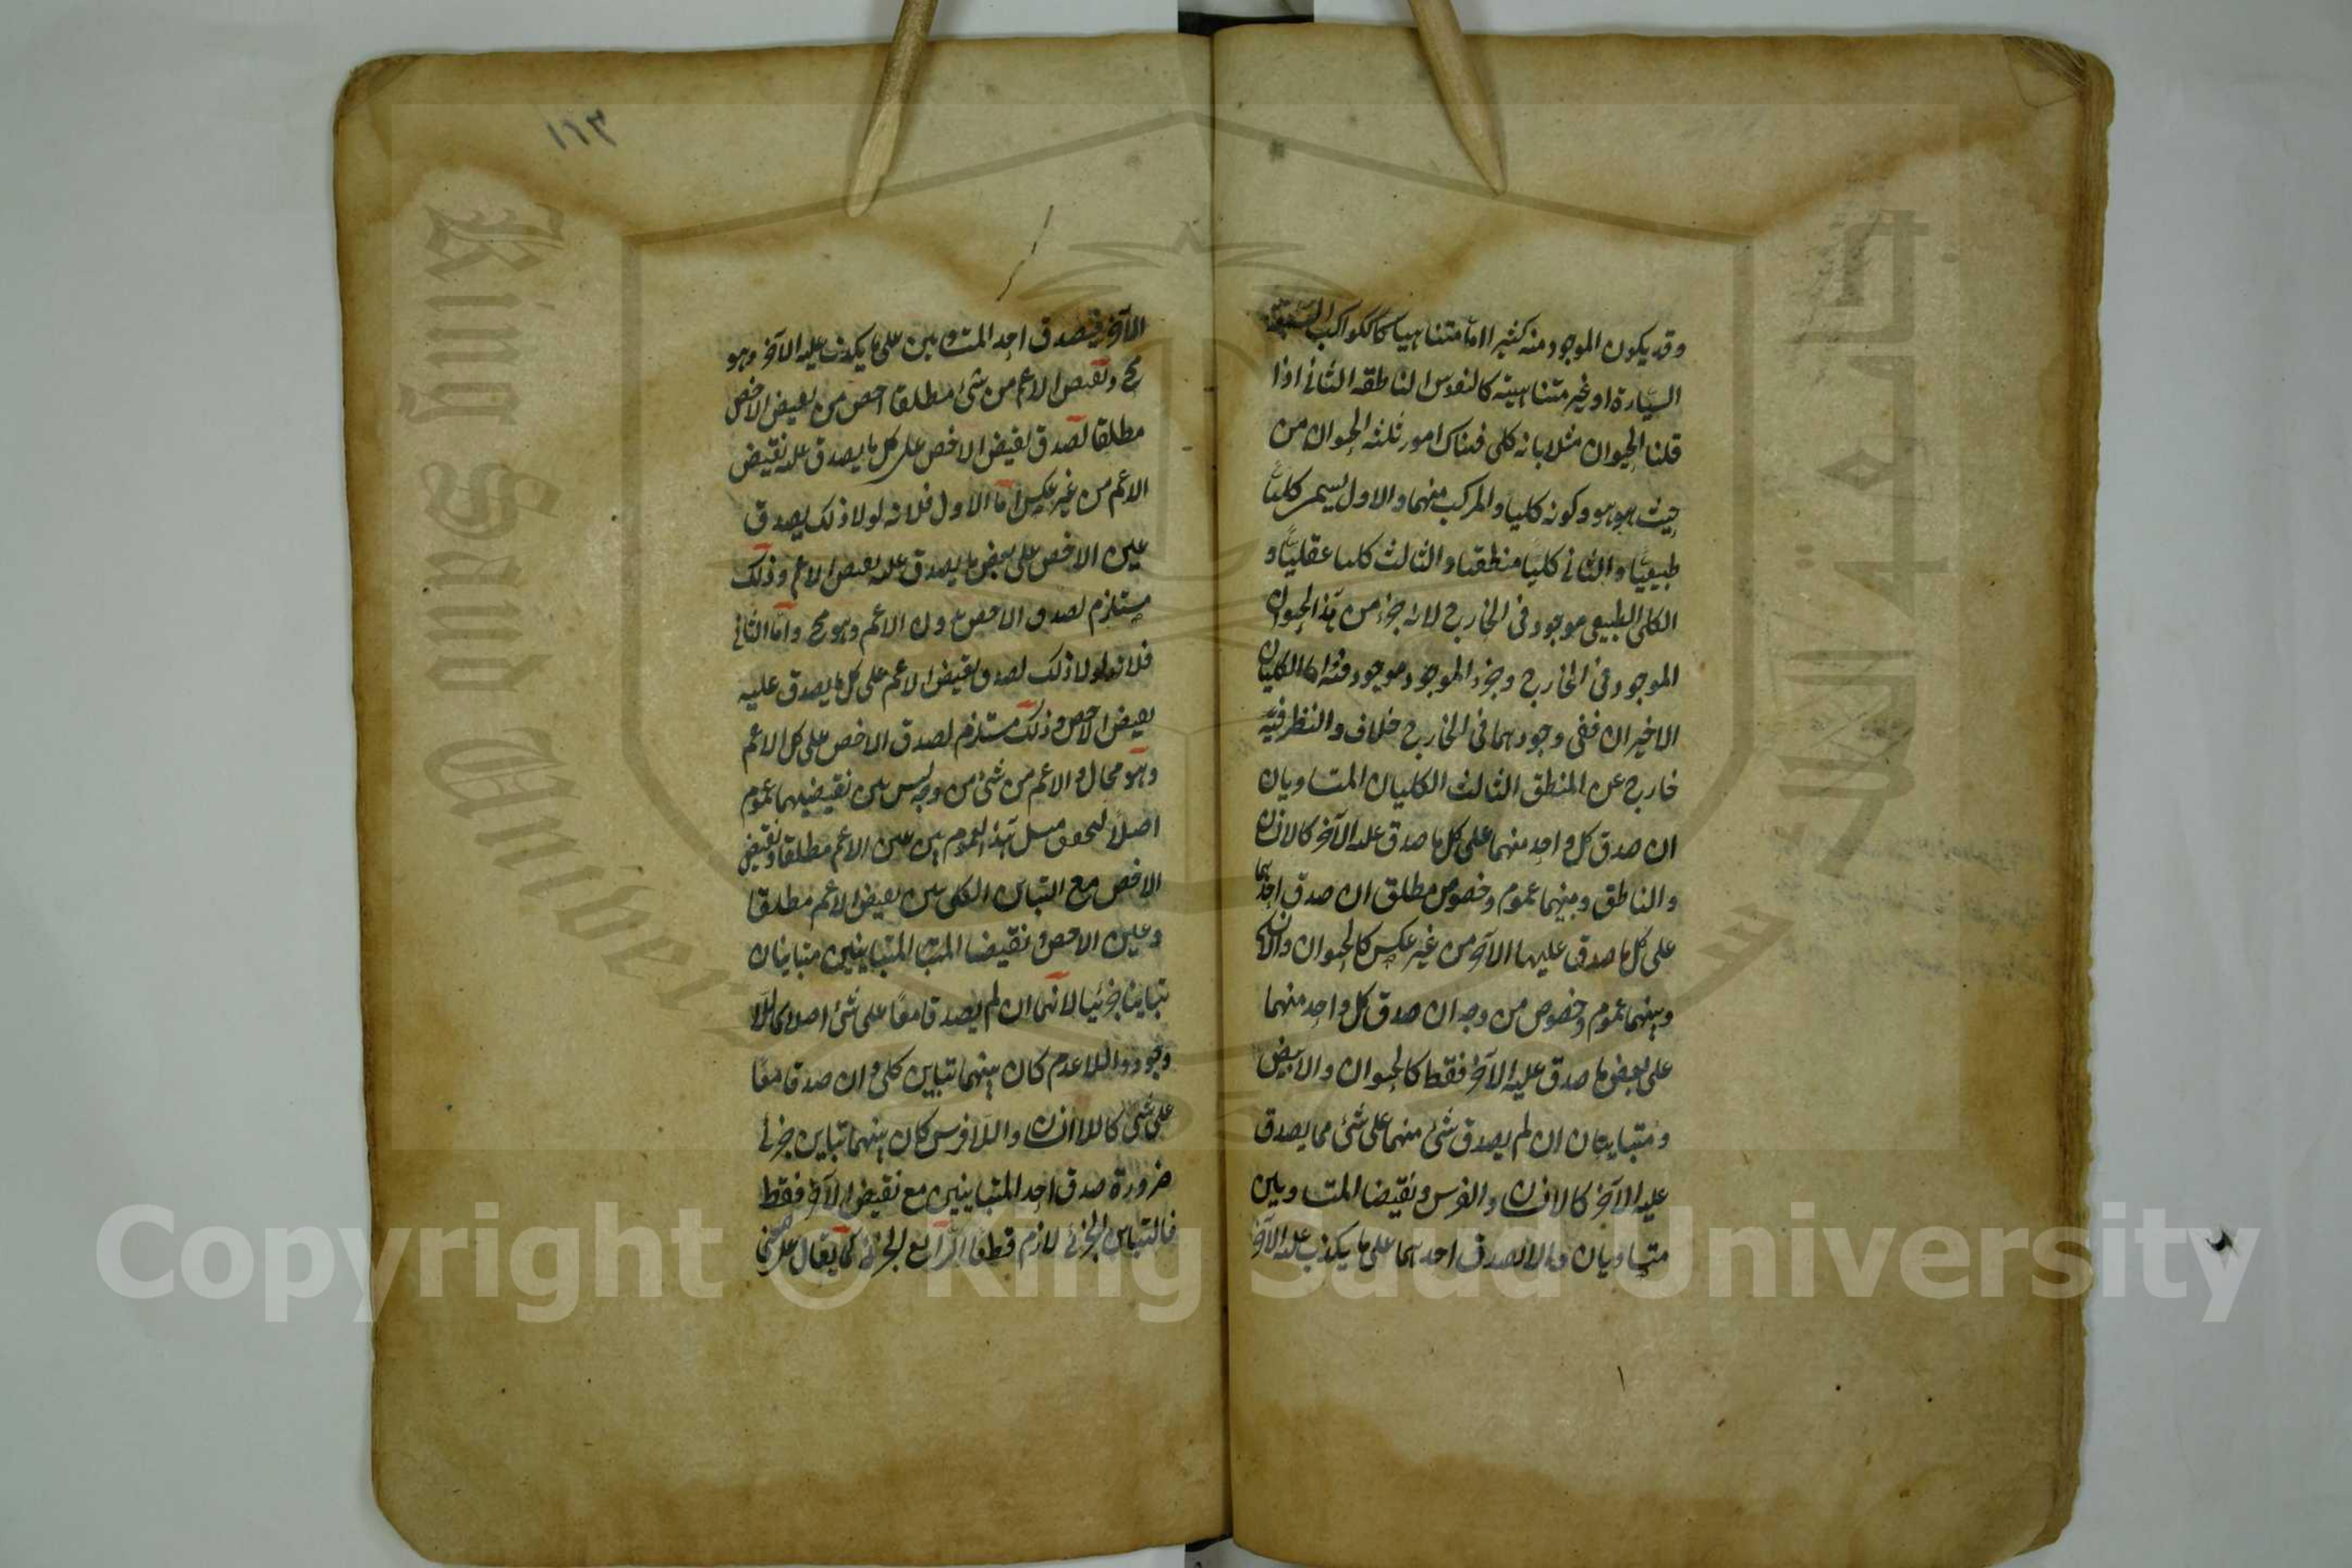 وقد يكون الموجود منه كثيرا اما متناهيا كالكواكب السبعة
السيّارة او غير متناهية كالنفوس الناطقة الثاني اذا
قلنا الحيوان مثلا بانه كلى فهناك امور ثلثه الحيوان من
حيث هو هو وكونه كليا والمركب منهما والاول يسمى كليا
طبيعيّا والثاني كليّا منطقيا والثالث كليا عقليّا و
الكلى الطبيعى موجود فى الخارج لانه جزء من هذا الحيوان
الموجود فى الخارج وجزء الموجود موجود فيه اما الكليان
الاخيران ففى وجودهما فى الخارج خلاف والنظر فيه
خارج عن المنطق الثالث الكليان المتساويان
ان صدق كل واحد منهما على كل ما صدق عليه الآخر كالانسان
والناطق وبينهما عموم وخصوص مطلق ان صدق احدهما
على كل ما صدق عليها الآخر من غير عكس كالحيوان والانسان
وبينهما عموم وخصوص من وجه ان صدق كل واحد منهما
على بعض ما صدق عليه الآخر فقط كالحيوان والابيض
ومتباينان ان لم يصدق شئ منهما على شئ مما يصدق
عليه الآخر كالانسان والفرس ونقيضا المتساويين
متساويان والا لصدق احدهما على ما يكذب عليه الآخر
الآخر فيصدق احد المتساويين على ما يكذب عليه الآخر وهو
مح ونقيض الاعم من شئ مطلقا اخص من نقيض الاخص
مطلقا لصدق نقيض الاخص على كل ما يصدق عليه نقيض
الاعم من غير عكس امّا الاول فلانه لولا ذلك يصدق
عين الاخص على بعض ما يصدق عليه نقيض الاعم وذلك
مستلزم لصدق الاخص بدون الاعم وهو مح وامّا الثاني
فلانه لولا ذلك لصدق نقيض الاعم على كل ما يصدق عليه
نقيض الاخص وذلك مستلزم لصدق الاخص على كل الاعم
وهو محال والاعم من شئ من وجه ليس بين نقيضيهما عموم
اصلا لتحقق مثل هذا العموم بين عين الاعم مطلقا ونقيض
الاخص مع التباين الكلى بين نقيض الاعم مطلقا
وعين الاخص ونقيضا المتبا المتباينين متباينان
تباينا جزئيا لانهما ان لم يصدقا معًا على شئ اصلا كاللا
وجود واللاعدم كان بينهما تباين كلى وان صدقا معًا
على شئ كاللاانسان واللافرس كان بينهما تباين جزئى
ضرورة صدق احد المتباينين مع نقيض الآخر فقط
فالتباين الجزئى لازم قطعا الرابع الجزئى كما يقال على المعنى